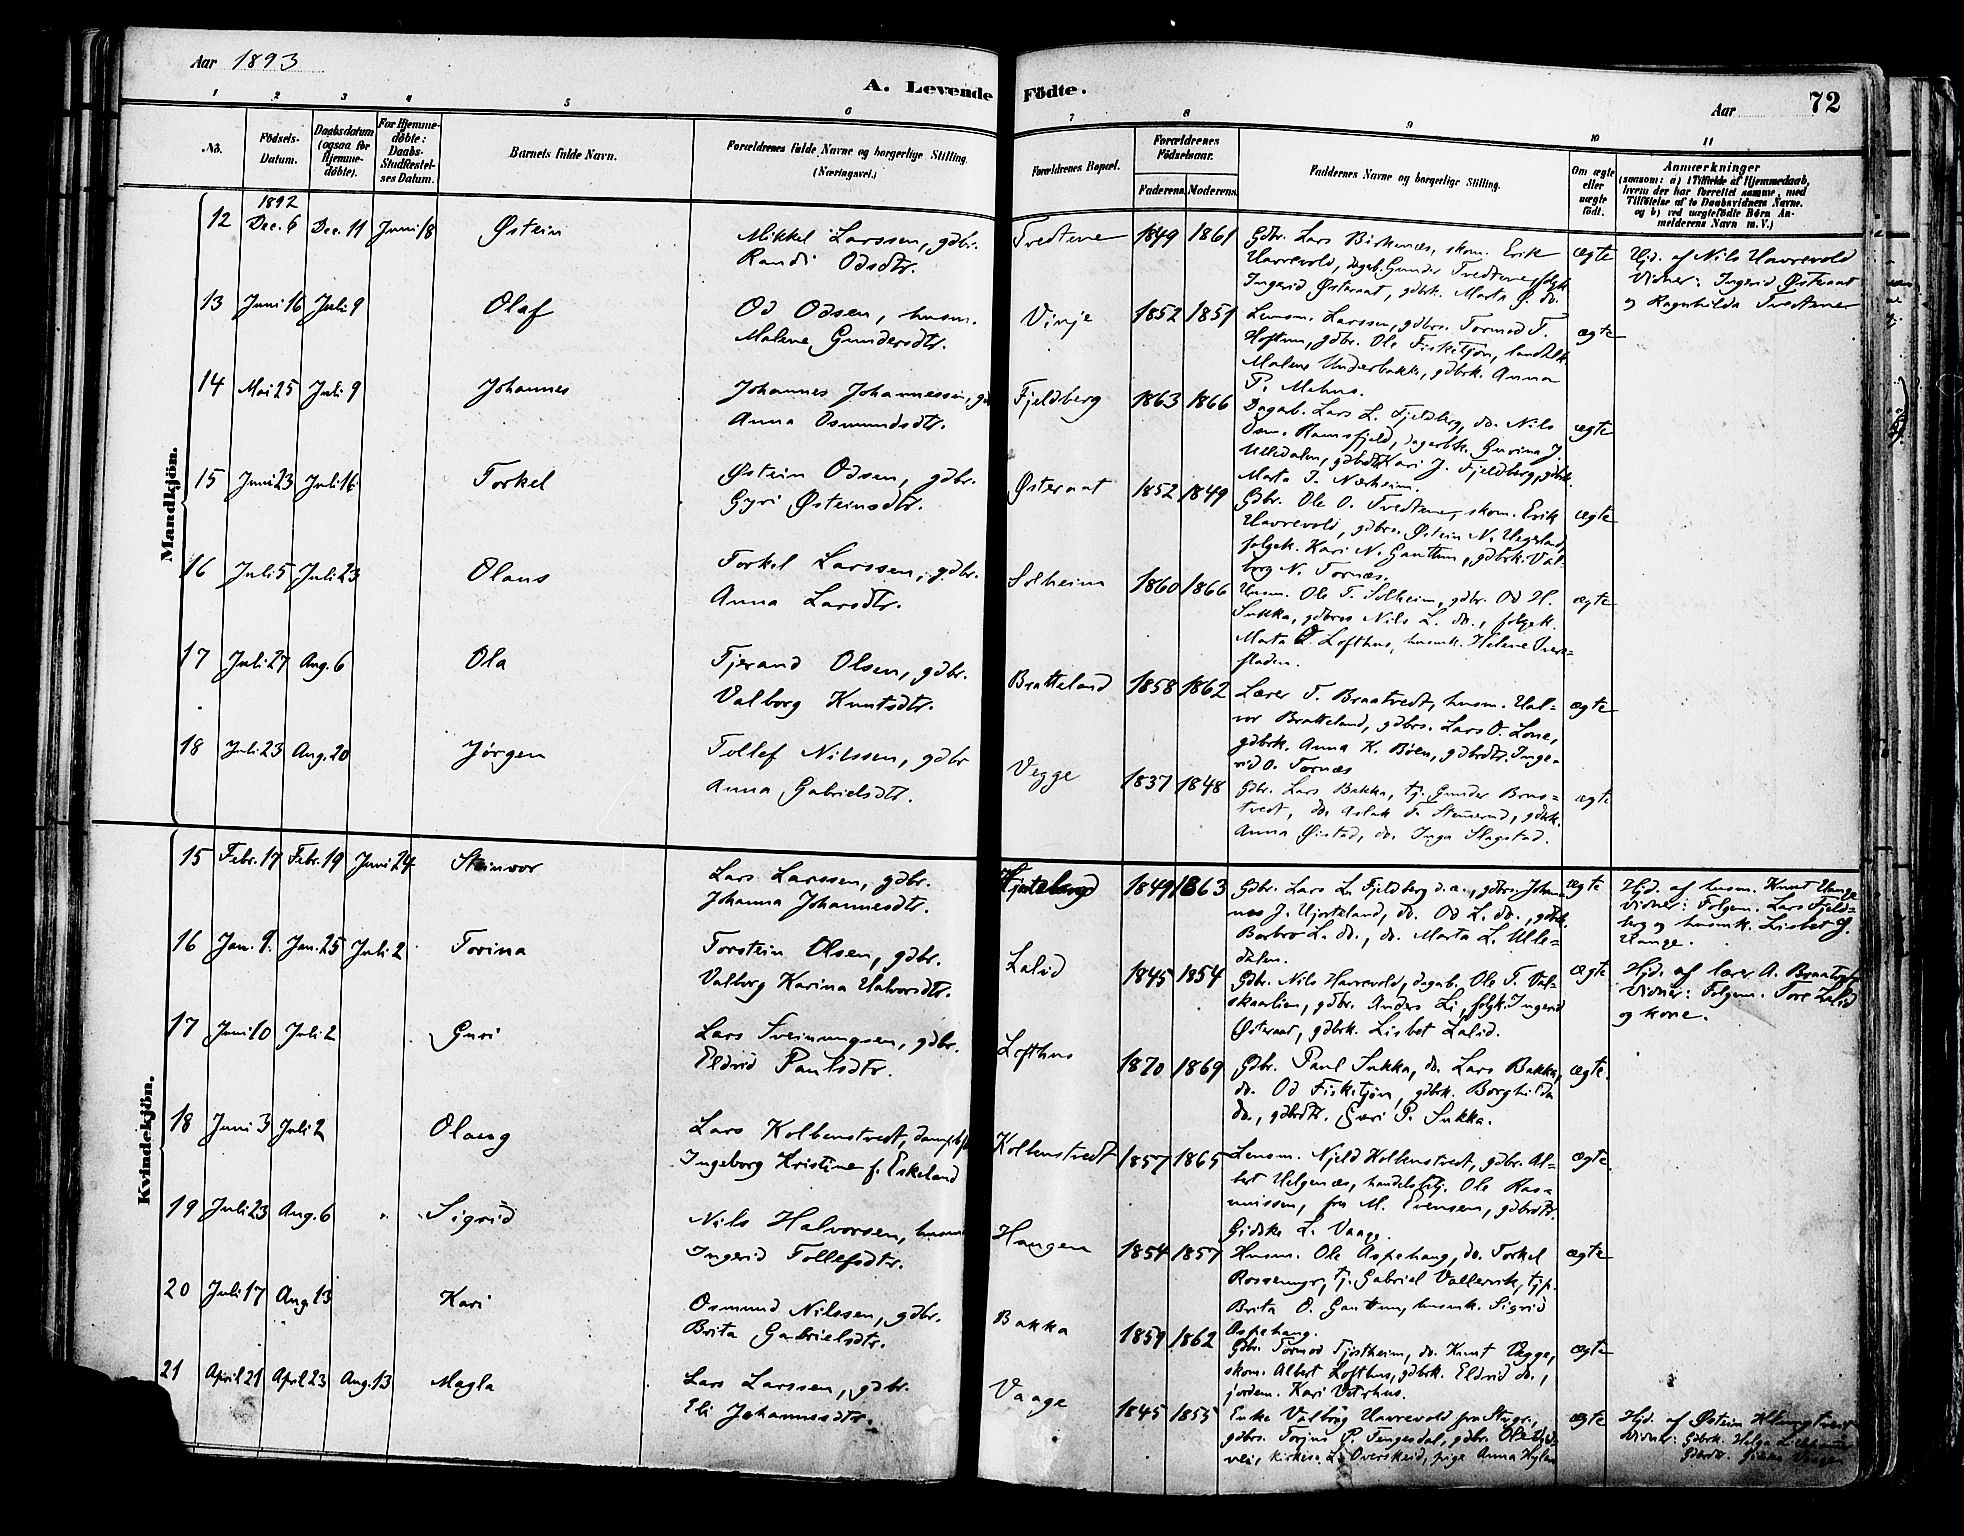 Aar 1893
A. Levende Födte.
Aar
72
1 2 3 4 5 6 7 8 9 10 11
No.
Födsels-Datum.
Daabsdatum (ogsaa for Hjemme-döbte).
For Hjemme-döbte: Daabs-Stadfæstel-ses Datum.
Barnets fulde Navn.
Forældrenes fulde Navne og borgerlige Stilling. (Næringsvei.)
Forældrenes Bopæl.
Forældrenes Födselsaar.
Faderens. Moderens.
Faddernes Navne og borgerlige Stilling.
Om ægte eller uægte födt.
Anmærkninger
(saasom: a) i Tilfælde af Hjemmedaab, hvem der har forrettet samme, med Tilföielse af to Daabsvidners Navne. og b) ved uægtefödte Börn An-melderens Navn m.V.)
Mandkjön.
1892
12 Dec. 6 Dec. 11 Juni 18 Østein Mikkel Larssen, gdbr. Tvedtene 1849 1861 Gdbr. Lars Birkenæs, skom. Erik ægte Hjd. af Nils Havrevold
Randi Odsdtr. Havrevold, dagab. Gunder Tvedtene, folgk. Vidner: Ingerid Østeraat
Ingerid Østeraat, gdbrk. Marta Ø. do. og Ragnhilda Tvedtene
13 Juni 16 Juli 9 Olaf Od Odsen, husm. Vinje 1852 1851 Lensm. Larssen, gdbrs. Tormod T. ægte
Malene Gundersdtr. Hoftun, gdbr. Ole Fisketjøn, landhlk.
Malene Underbakke, gdbrk. Anna
P. Mehus.
14 Mai 25 Juli 9 Johannes Johannes Johannessen, Fjeldberg 1863 1866 Dagab. Lars L. Fjeldberg, do. Nils ægte
Anna Osmundsdtr. Osm. Ramsfjeld, dagerbk. Gurina J.
Ulledalen, gdbrdtr. Kari J. Fjeldberg, gdbrk.
Marta J. Nærheim.
15 Juni 23 Juli 16 Torkel Østein Odsen, gdbr. Østeraat 1852 1849 Gdbr. Ole O. Tvedtene, skom. Erik ægte
Gyri Østeinsdtr. Havrevold, gdbrs. Østein N.
folgek. Kari N. Gauttun, gdbrk. Val-
borg N. Tornæs.
16 Juli 5 Juli 23 Olaus Torkel Larssen, gdbr. Solheim 1860 1866 Husm. Ole T. Solheim, gdbr. Od H. ægte
Anna Larsdtr. Sukka, gdbrss Nils L. do., folgek.
Marta Lofthus, husmk. Helene
fladen.
17 Juli 27 Aug. 6 Ola Tjerand Olsen, gdbr. Bratteland 1858 1862 Lærer T. Braatvedt, husm. Hal- ægte
Valborg Knutsdtr. vor Bratteland, gdbrs. Lars O. Lone,
gdbrk. Anna K. Bøen, gdbrdtr. Inge-
rid O. Tornæs
18 Juli 23 Aug. 20 Jørgen Tollef Nilssen, gdbr Vegge 1837 1848 Gdbr. Lars Bakka, tj. Gunder ægte
Anna Gabrielsdtr. tvedt, do. Aslak
Anna Øistad, do. Inga Slagstad.
Kvindekjön.
15 Febr. 17 Febr. 19 Juni 24 Steinvor Lars Larssen, gdbr. 1849 1863 Gdbr. Lars L. Fjeldberg d.a., gdbrs. Johan- ægte Hjd. af husm. Knut Hauge
Johanna Johannesdtr. nes J. Hjorteland, do. Od L. do., gdbrk. Vidner: Folgem. Lars Fjeld-
Barbro L. do., do. Marta L. Ulle- berg og husmk. Lisbet J.
dalen. Hauge.
16 Jan. 9. Jan. 25 Juli 2 Torina Torstein Olsen, gdbr. Lalid 1845 1854 Gdbr. Nils Havrevold, dagab. Ole T. Val- ægte Hjd. af lærer A. Braatvedt
Valborg Karina Halvorsdtr. skaarlien, gdbr. Anders Li, folgk. Ingerid Vidner: Folgem. Tore Lalid
Østeraat, gdbrk. Lisbet Lalid. og kone.
17 Juni 10 Juli 2 Guri Lars Sveinungsen, gdbr. Lofthus 1870 1869 Gdbr. Paul Sukka, do. Lars Bakka, ægte.
Eldrid Paulsdtr. do. Od Fisketjøn, gdbrk. Borghilda
do., gdbrdtr. Guri P. Sukka.
18 Juni 3 Juli 2 Olaug Lars Kolbenstvedt, Kolbenstvedt 1857 1865 Lensm. Njeld Kolbenstvedt, gdbr. Al- ægte
Ingeborg Kristine f. Eskeland bert Helgenæs, handelsbtj. Ole Ras-
mussen, fru M. Evensen, gdbrdtr.
Gidske L. Vaage.
19 Juli 23 Aug. 6 Sigrid Nils Halvorsen, husm Haugen 1854 1857 Husm. Ole Aspehaug, do. Torkel ægte
Ingerid Tollefsdtr. Rossemyr, tj. Gabriel Vallervik, tjp.
Brita O. Gauttun, husmk. Sigrid
Aspehaug.
20 Juli 17 Aug. 13 Kari Osmund Nilssen, gdbr. Bakka 1859 1862 Gdbr. Tormod Fjostheim, do. Knut Vegge, ægte
Brita Gabrielsdtr. skom. Albert Lofthus, gdbrk. Eldrid do.,
jordem. Kari
21 April 21 April 23 Aug. 13 Magla Lars Larssen, gdbr. Vaage 1845 1855 Enke Valborg Havrevold ægte Hjd. af Østein
Eli Johannesdtr. gdbrs. Torjus P. Tengesdal, gdbr. Ole Vidner: Gdbrk. Helga
vei, kirkes. L. Overskeid, pige Anna Hylen Gdbrdtr. Vaagen